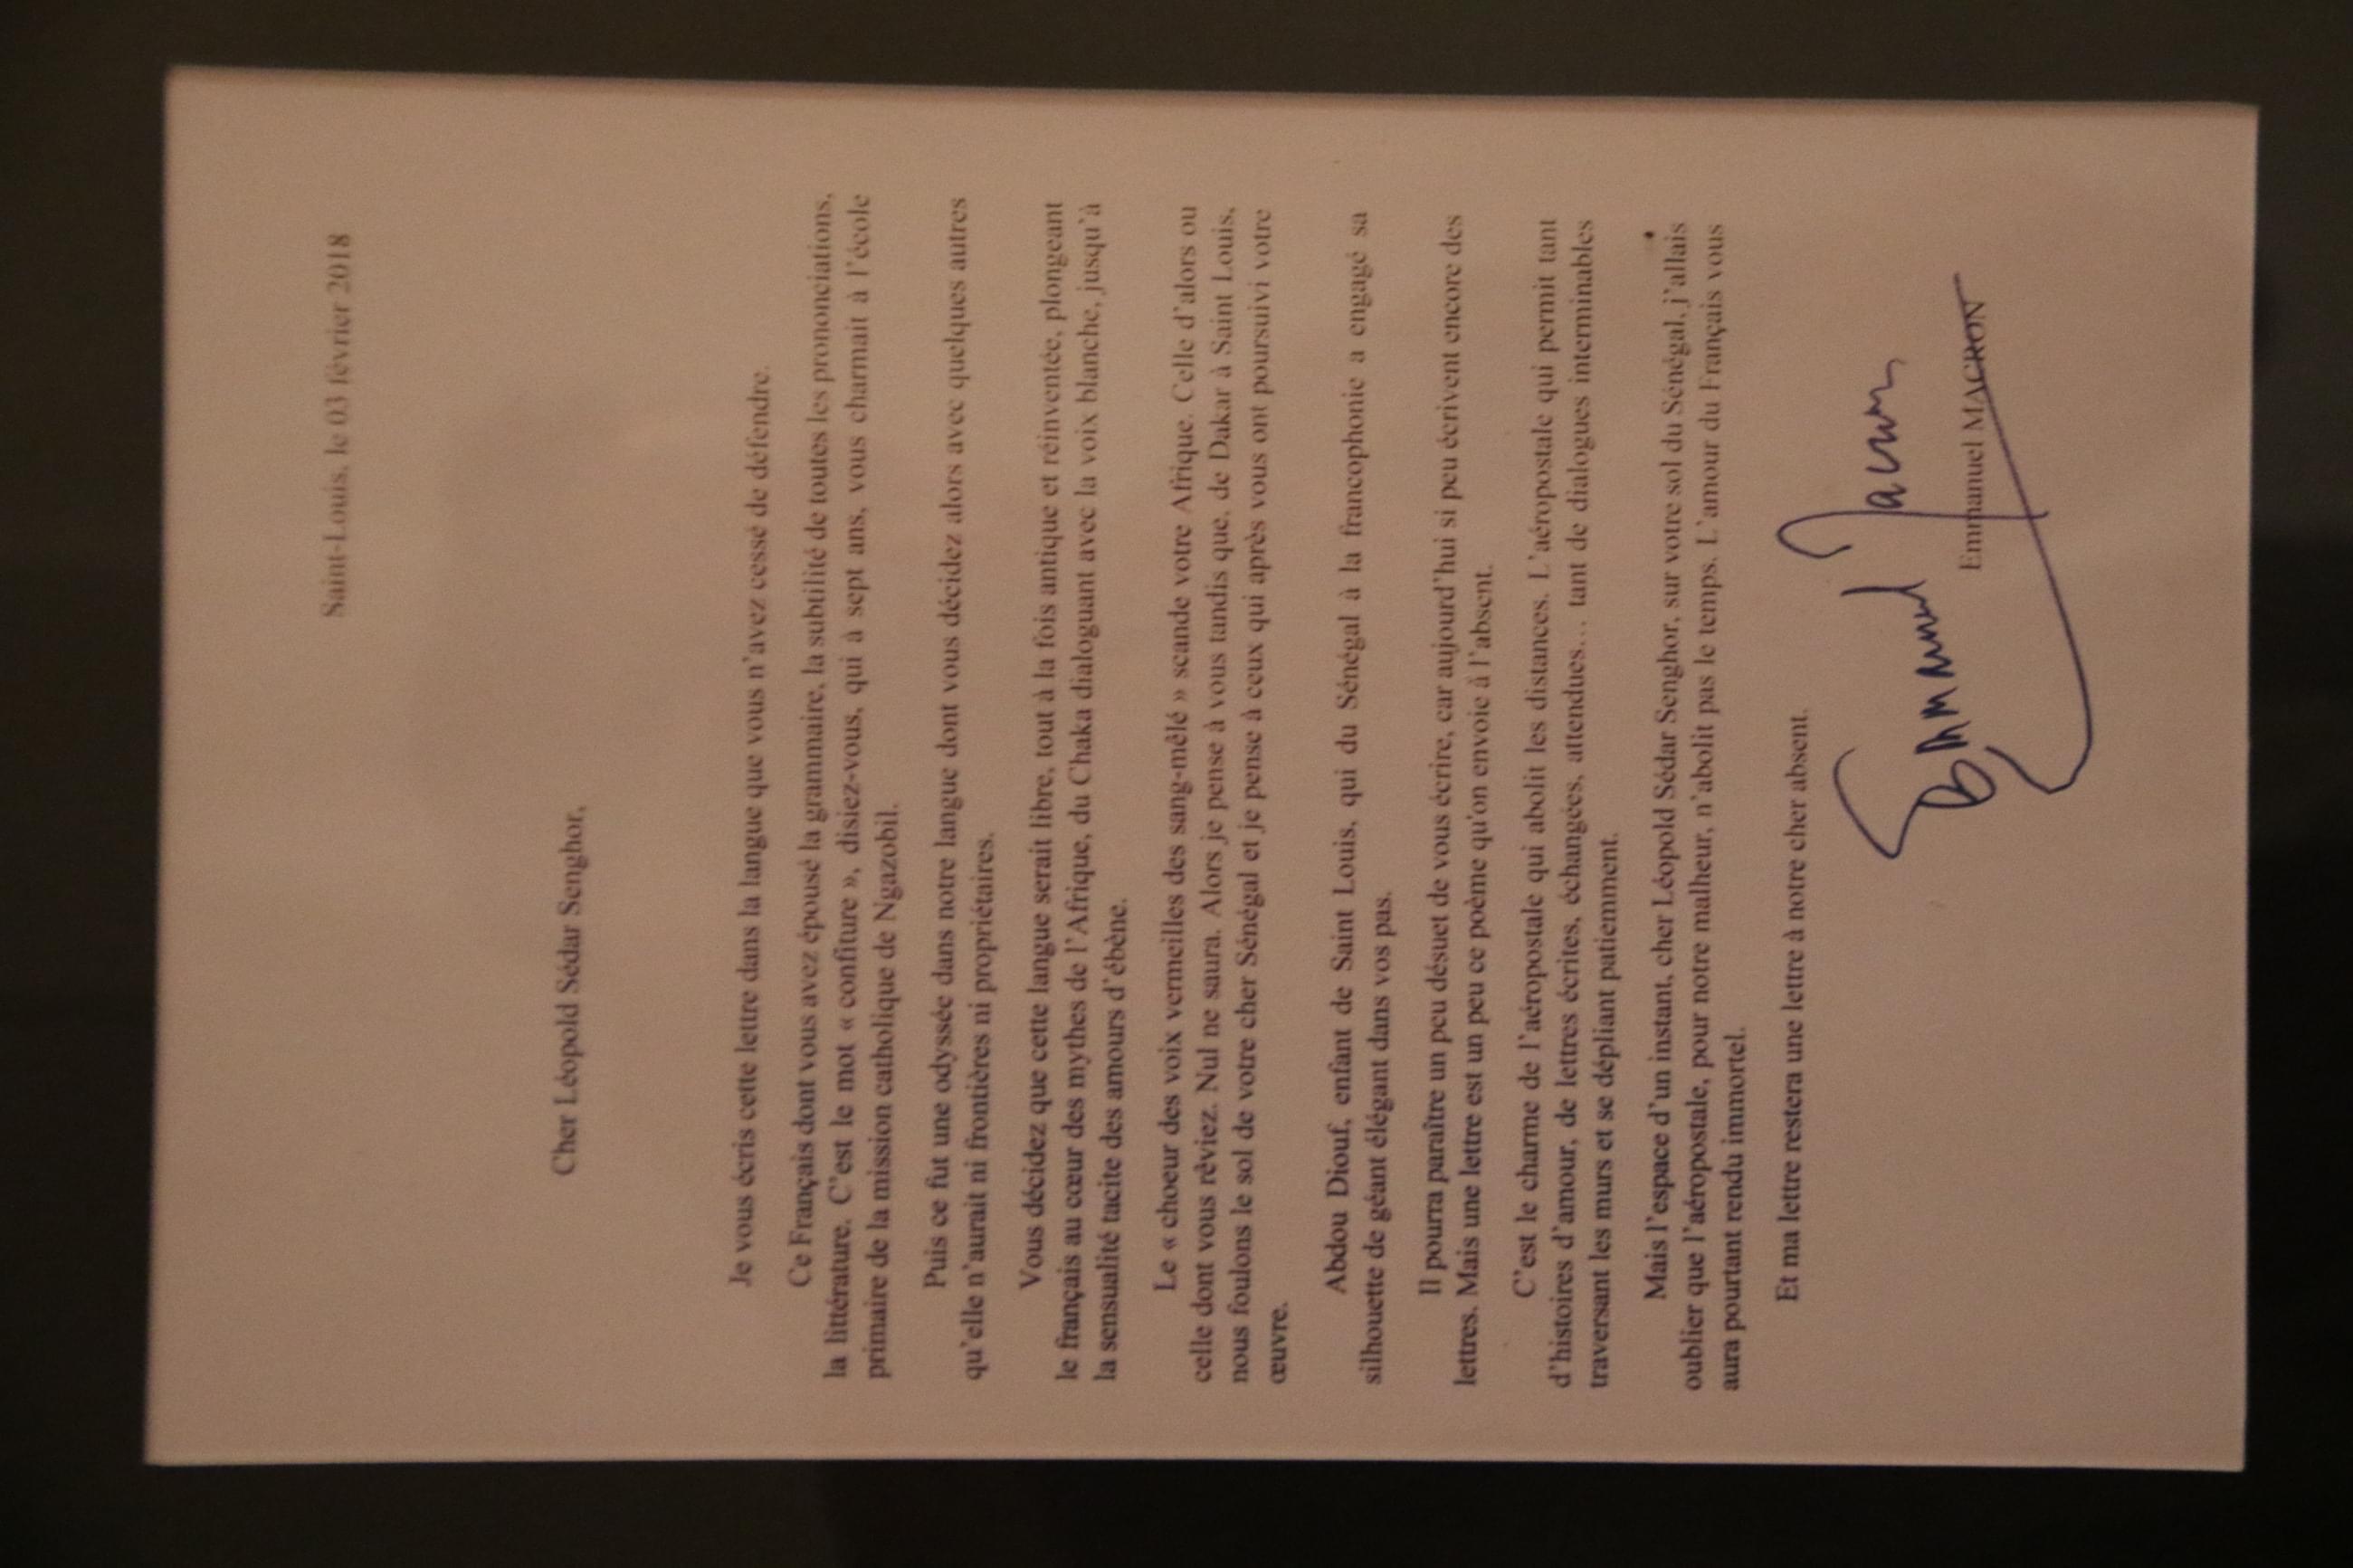 Saint-Louis, le 03 février 2018
Cher Léopold Sédar Senghor,
Je vous écris cette lettre dans la langue que vous n'avez cessé de défendre.
Ce Français dont vous avez épousé la grammaire, la subtilité de toutes les prononciations,
la littérature. C'est le mot « confiture », disiez-vous, qui à sept ans, vous charmait à l'école
primaire de la mission catholique de Ngazobil.
Puis ce fut une odyssée dans notre langue dont vous décidez alors avec quelques autres
qu'elle n'aurait ni frontières ni propriétaires.
Vous décidez que cette langue serait libre, tout à la fois antique et réinventée, plongeant
le français au cœur des mythes de l'Afrique, du Chaka dialoguant avec la voix blanche, jusqu'à
la sensualité tacite des amours d'ébène.
Le « choeur des voix vermeilles des sang-mêlé » scande votre Afrique. Celle d'alors ou
celle dont vous rêviez. Nul ne saura. Alors je pense à vous tandis que, de Dakar à Saint Louis,
nous foulons le sol de votre cher Sénégal et je pense à ceux qui après vous ont poursuivi votre
œuvre.
Abdou Diouf, enfant de Saint Louis, qui du Sénégal à la francophonie a engagé sa
silhouette de géant élégant dans vos pas.
Il pourra paraître un peu désuet de vous écrire, car aujourd'hui si peu écrivent encore des
lettres. Mais une lettre est un peu ce poème qu'on envoie à l'absent.
C'est le charme de l'aéropostale qui abolit les distances. L'aéropostale qui permit tant
d'histoires d'amour, de lettres écrites, échangées, attendues… tant de dialogues interminables
traversant les murs et se dépliant patiemment.
Mais l'espace d'un instant, cher Léopold Sédar Senghor, sur votre sol du Sénégal, j'allais
oublier que l'aéropostale, pour notre malheur, n'abolit pas le temps. L'amour du Français vous
aura pourtant rendu immortel.
Et ma lettre restera une lettre à notre cher absent.
Emmanuel Macron
Emmanuel MACRON